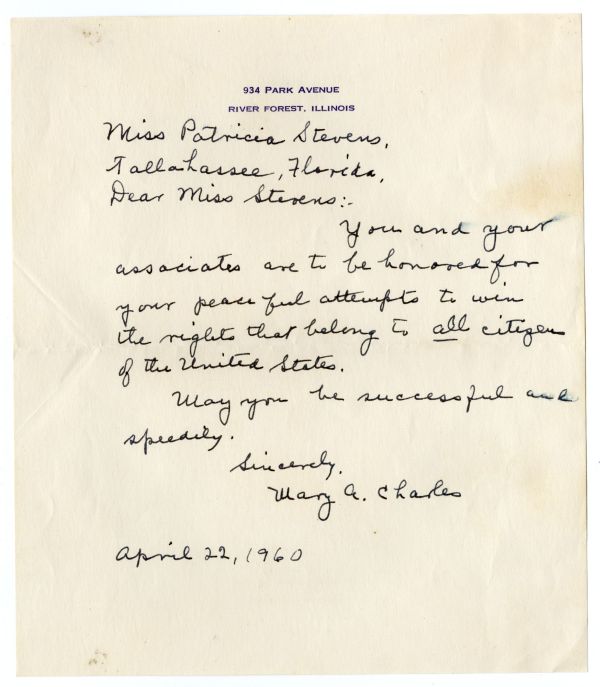 934 PARK AVENUE
RIVER FOREST, ILLINOIS
Miss Patricia Stevens,
Tallahassee, Florida,
Dear Miss Stevens:-
You and your
associates are to be honored for
your peaceful attempts to win
the rights that belong to all citizens
of the United States.
May you be successful and
speedily.
Sincerely,
Mary A. Charles
April 22, 1960